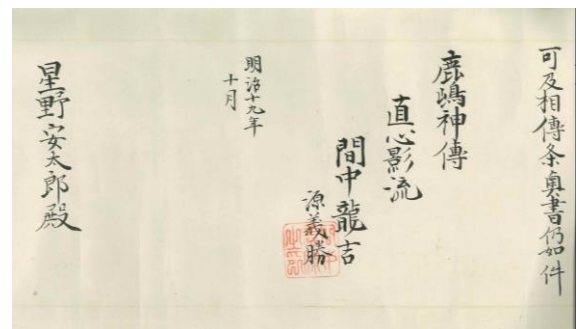 可及相傳条奥書仍如件
鹿嶋神傳
直心影流
間中龍吉
源義勝
明治十九年
十月
星野安太郎殿